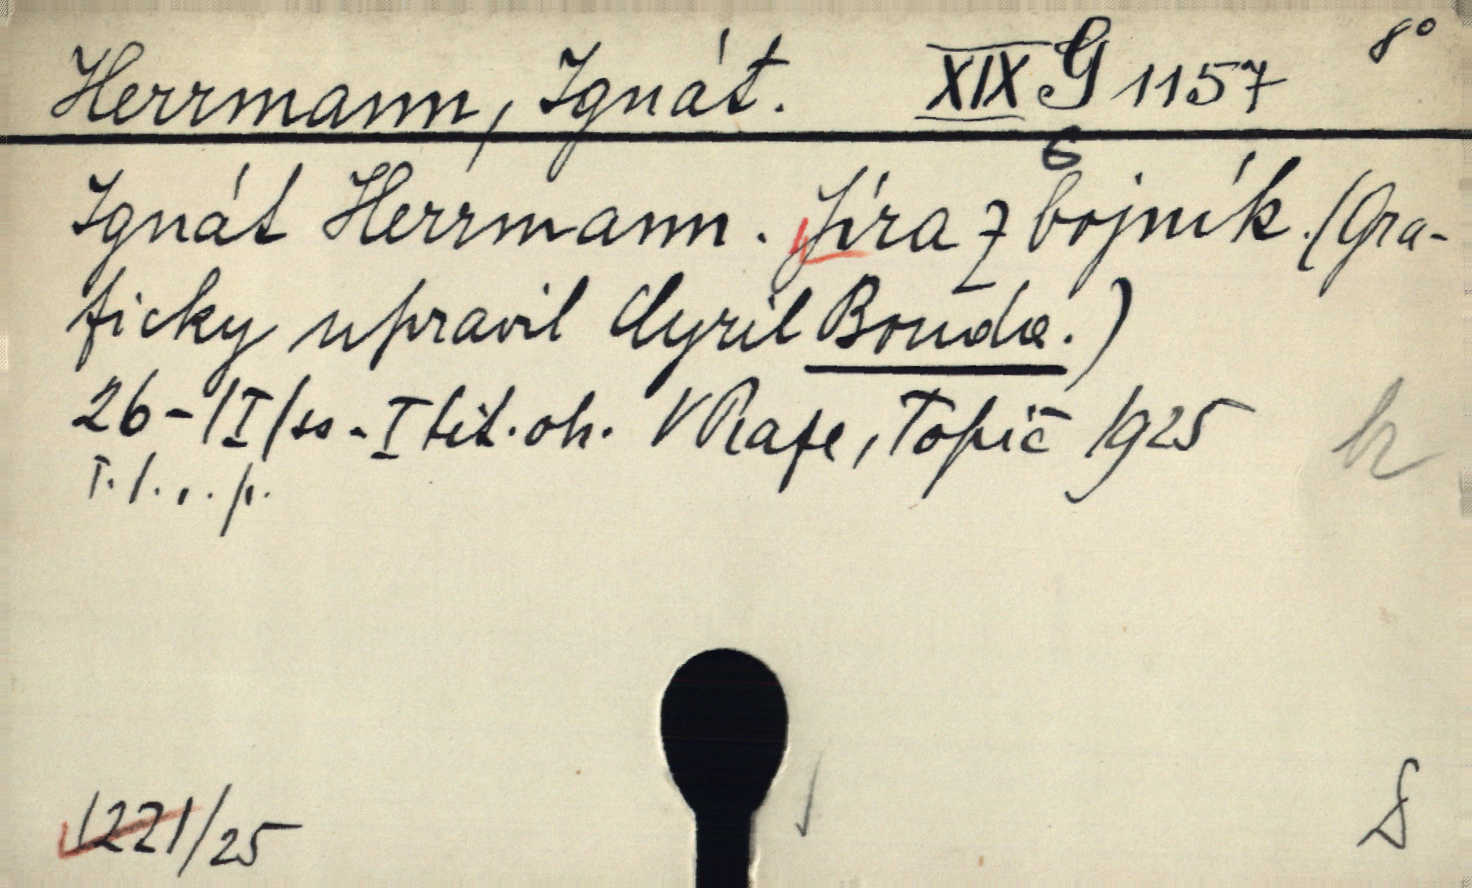 Herrmann, Ignát. XIX G 1157 8°
6
Ignát Herrmann. Jíra Zbojník. (Gra-
ficky upravil Cyril Bouda.)
26-/I/ss - I tit. ob. V Praze, Topič 1925
1221/25